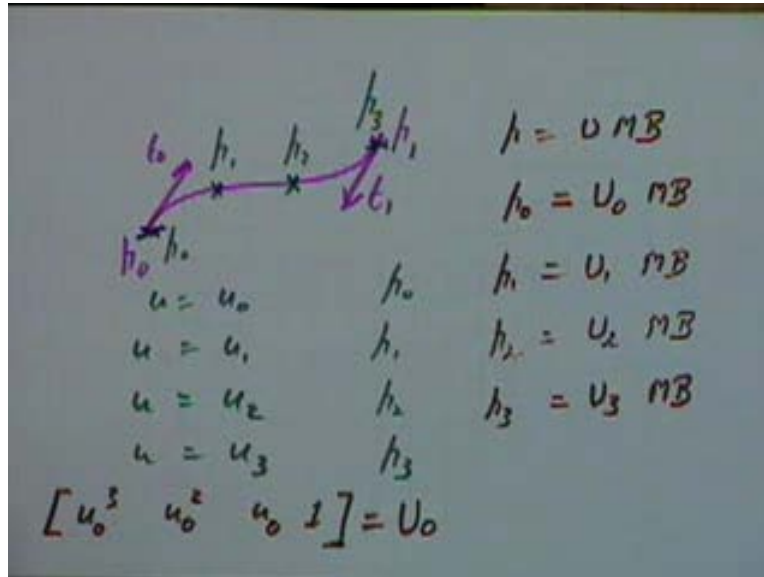 t₀ p₁ p₂ p₃ p₁
t₁
p₀ p₀
u = u₀ p₀
u = u₁ p₁
u = u₂ p₂
u = u₃ p₃
[u₀³ u₀² u₀ 1] = U₀
p = U MB
p₀ = U₀ MB
p₁ = U₁ MB
p₂ = U₂ MB
p₃ = U₃ MB